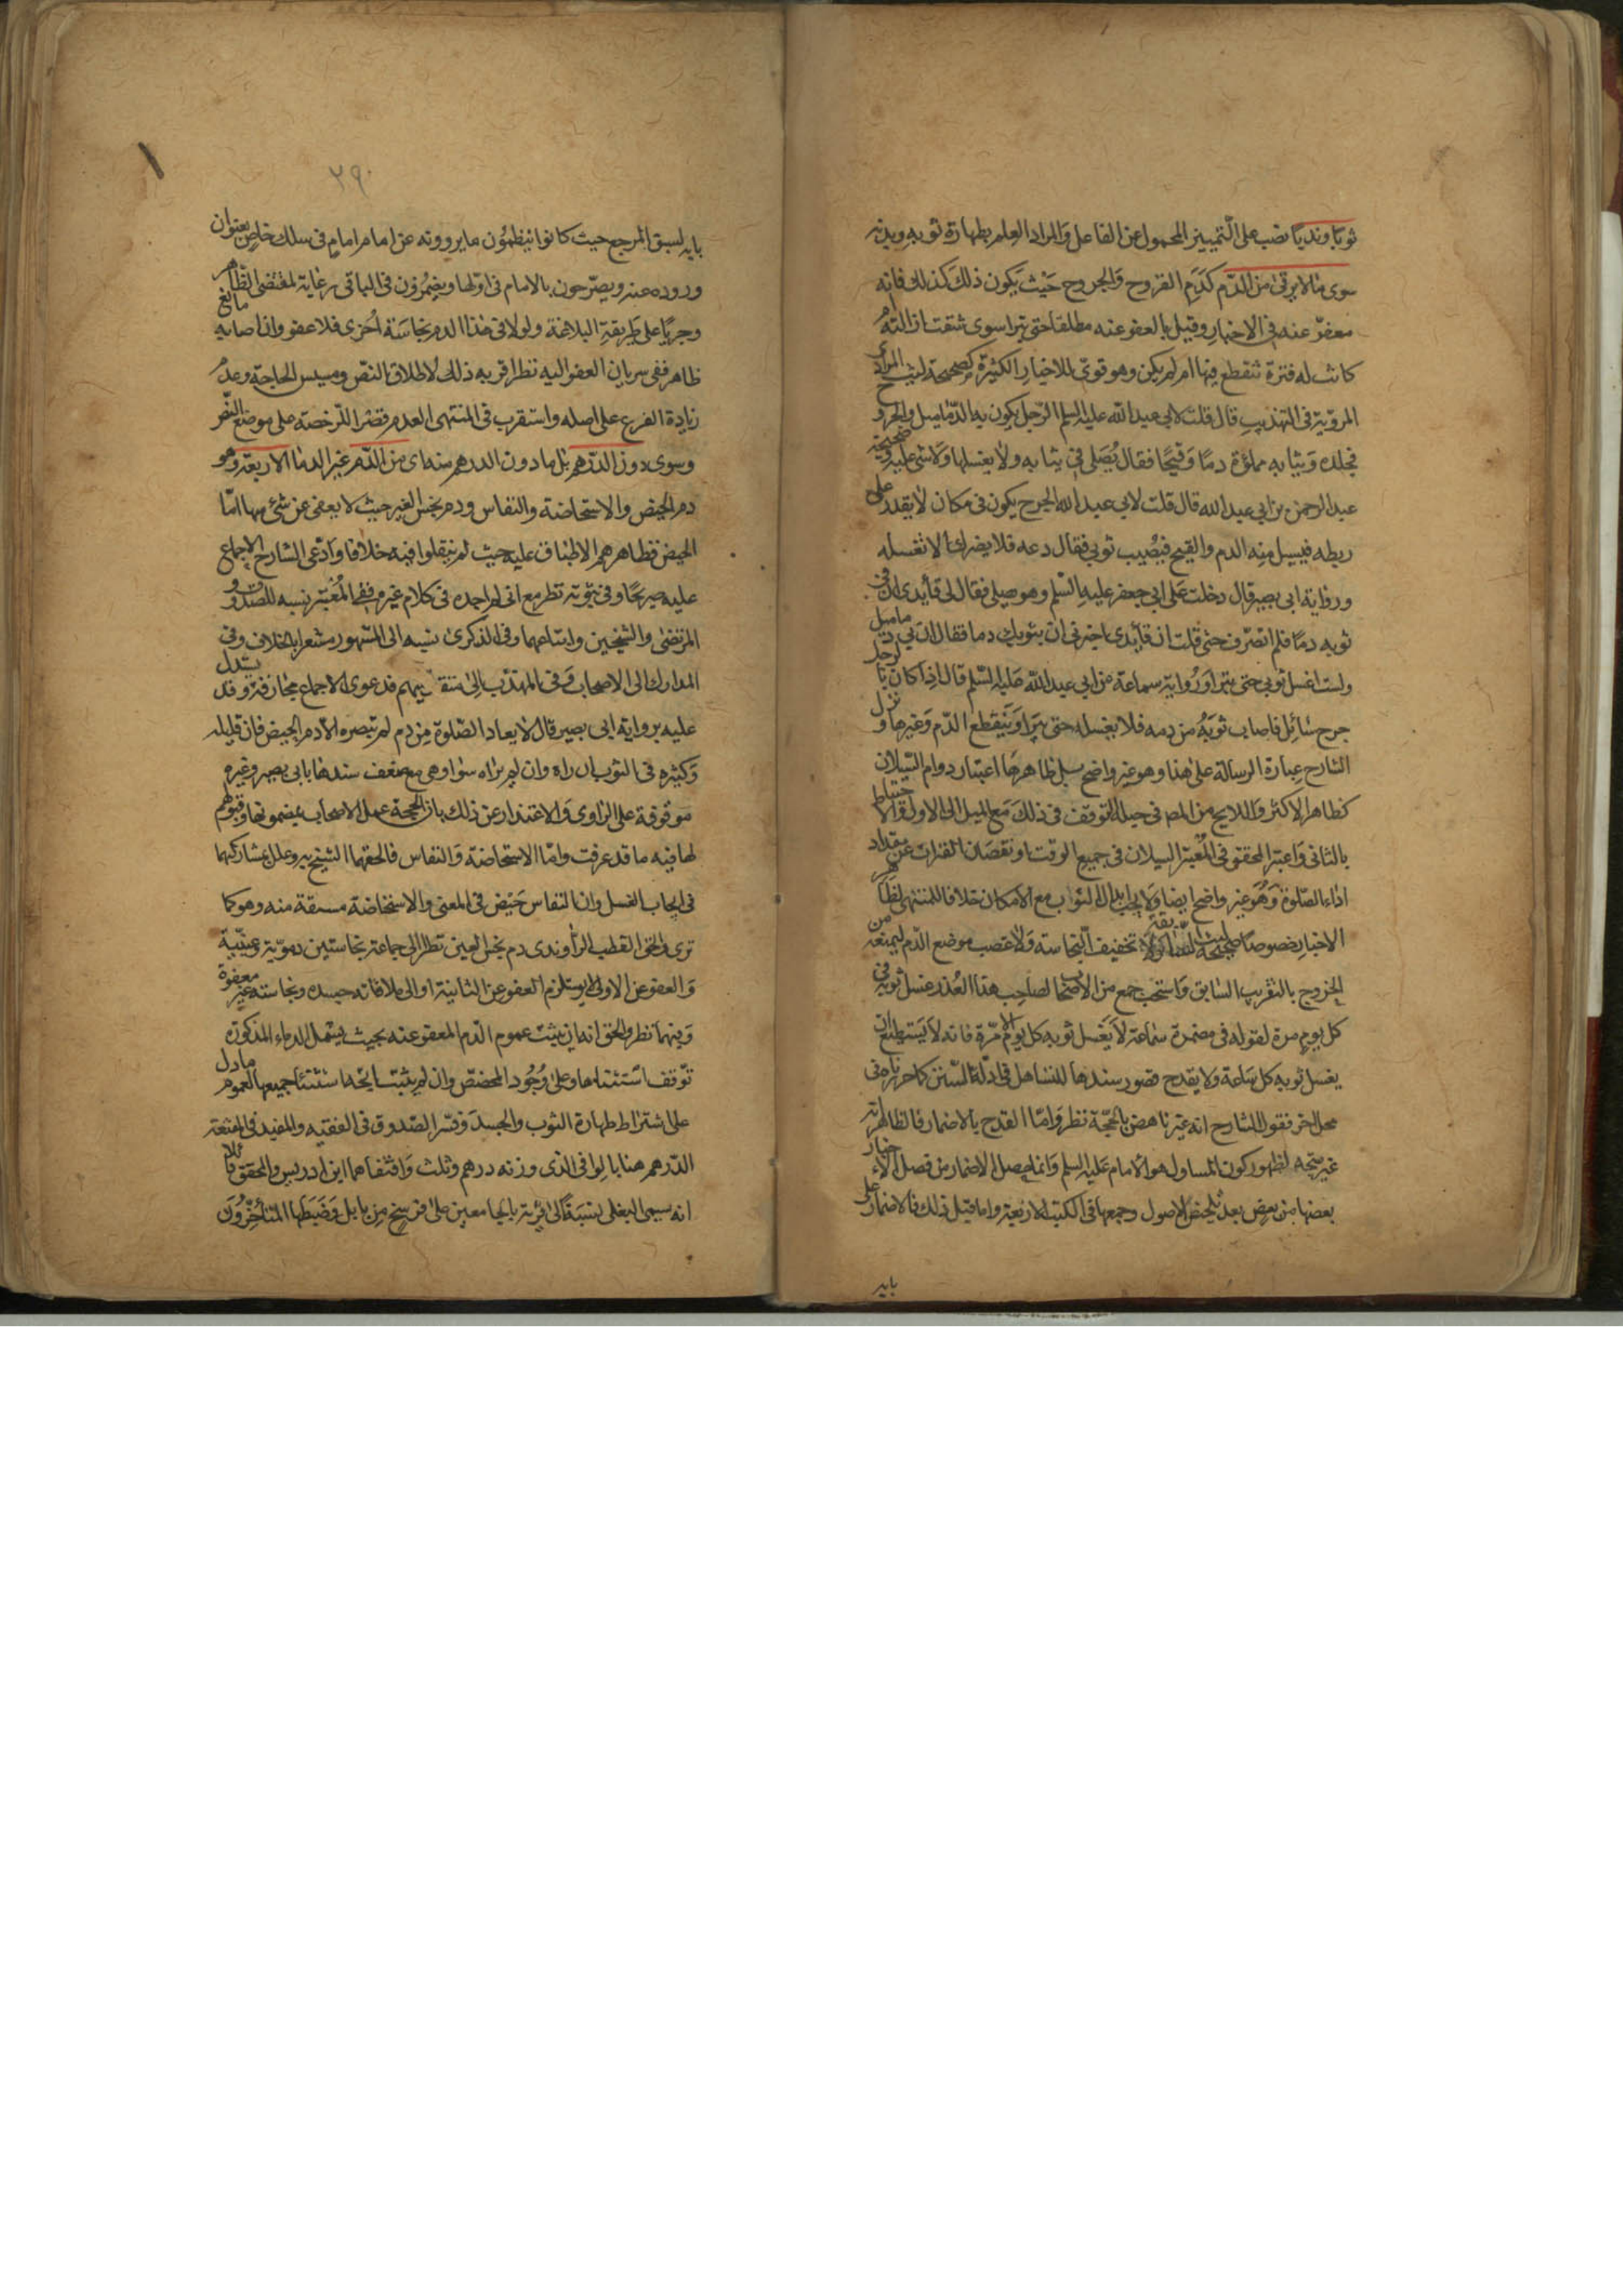 ثوبا وبدنا نصب على التمييز المحمول عن الفاعل والمراد العلم بطهارة ثوبه وبدنه
سوى ما لا يرقى من الدم كدم القروح والجروح حيث يكون ذلك كذلك فانه
معفو عنه في الاخبار وقيل بالعفو عنه مطلقا حتى يبرا سوى شقت ازالته ام
كانت له فترة تنقطع فيها ام لم يكن وهو قوي للاخبار الكثيرة كصحيحة ليث المرادي
المروية في التهذيب قال قلت لابي عبد الله عليه السلم الرجل يكون به الدماميل والجروح
فجلده وثيابه مملوة دما وقيحا فقال يصلي في ثيابه ولا يغسلها ولا شئ عليه وصحيحة
عبد الرحمن بن ابي عبد الله قال قلت لابي عبد الله الجرح يكون في مكان لا يقدر على
ربطه فيسيل منه الدم والقيح فيصيب ثوبي فقال دعه فلا يضرك ان لا تغسله
ورواية ابي بصير قال دخلت على ابي جعفر عليه السلم وهو يصلي فقال لي قائدي ان في
ثوبه دما فلم انصرف حتى قلت ان قائدي اخبرني ان بثوبك دما فقال ان بي دماميل
ولست اغسل ثوبي حتى تبرا ورواية سماعة عن ابي عبد الله عليه السلم قال اذا كان بالرجل
جرح سائل فاصاب ثوبه من دمه فلا يغسله حتى يبرا وينقطع الدم وغيرها ونزل
الشارح عبارة الرسالة على هذا وهو غير واضح بل ظاهرها اعتبار دوام السيلان
كظاهر الاكثر واللايح من المص في حبله التوقف في ذلك مع الميل الى الاول والاحتياط
بالثاني واعتبر المحقق في المعتبر السيلان في جميع الوقت او نقصان الفترات عن مقدار
اداء الصلوة وهو غير واضح ايضا ولا يجب ابدال الثواب مع الامكان خلافا للمنتهى لظاهر
الاخبار خصوصا صحيحة ليث السابقة ولا تخفيف النجاسة ولا عصب موضع الدم ليمنعه من
الخروج بالتقريب السابق واستحب جمع من الاصحاب لصاحب هذا العذر غسل ثوبه في
كل يوم مرة لقوله في مضمرة سماعة لا يغسل ثوبه كل يوم الا مرة فانه لا يستطيع ان
يغسل ثوبه كل ساعة ولا يقدح قصور سندها للتساهل في ادلة السنن كما حررناه في
محل اخر فقول الشارح انه غير ناهض بالحجة نظر واما القدح بالاضمار فالظاهر انه
غير متجه لظهور كون المسئول هو الامام عليه السلم وانما حصل الاضمار من فصل الاخبار
بعضها من بعض بعد تلخيص الاصول وجمعها في الكتب الاربعة واما قيل ذلك فالاضمار على
بابه
٢٩٠
بابه لسبق المرجع حيث كانوا ينظمون ما يروونه عن امام امام في سلك خاص بعنوان
وروده عنه ويصرحون بالامام في اولها ويضمرون في الباقي رعاية لمقتضى الظاهر
وجريا على طريقة البلاغة ولو لاقى هذا الدم نجاسة اخرى فلا عفو وان اصابه مائع
ظاهر ففي سريان العفو اليه نظر اقربه ذلك لاطلاق النص ومسيس الحاجة وعدم
زيادة الفرع على اصله واستقرب في المنتهى العدم قصرا للرخصة على موضع النص
وسوى دون الدرهم بل ما دون الدرهم سنه اي من الدم غير الدماء الاربعة وهو
دم الحيض والاستحاضة والنفاس ودم نجس الغير حيث لا يعفى عن شئ منها اما
الحيض فظاهرهم الاطباق عليه حيث لم ينقلوا فيه خلافا وادعى الشارح الاجماع
عليه صريحا وفي ثبوته نظر مع اني لم اجده في كلام غيره ففي المعتبر نسبه للصدوق و
المرتضى والشيخين واتباعهما وفي الذكرى نسبه الى المشهور مشعرا بالخلاف وفي
المدارك الى الاصحاب وفي المهذب الى متقدميهم فدعوى الاجماع مجازفة وقد يستدل
عليه برواية ابي بصير قال لا يعاد الصلوة من دم لم تبصره الا دم الحيض فان قليله
وكثيره في الثوب ان راه وان لم يراه سواء وهي مع ضعف سندها بابي بصير وغيره
موقوفة على الراوي والاعتذار عن ذلك بان الحجة عمل الاصحاب بمضمونها وقبولهم
لها فيه ما قد عرفت واما الاستحاضة والنفاس فالحقهما الشيخ به وعلل بمشاركتهما
في ايجاب الغسل وان النفاس حيض في المعنى والاستحاضة مشتقة منه وهو كما
ترى والحق القطب الراوندي دم نجس العين نظرا الى جماعة نجاستين دموية وعينية
والعفو عن الاولى لا يستلزم العفو عن الثانية او الى ملاقاته جسده ونجاسته غير معفوة
وفيهما نظر والحق انه ان يثبت عموم الدم المعفو عنه بحيث يشمل الدماء المذكورة
توقف استثناها وعلى وجود المخصص وان لم يثبت ايحد استثنا جميعها لعموم ما دل
على اشتراط طهارة الثوب والجسد وفسر الصدوق في الفقيه والمفيد في المقنعة
الدرهم هنا بالوافي الذي وزنه درهم وثلث واقتفاهما ابن ادريس والمحقق قائلا
انه سيمى البغلي نسبة الى قرية بالجامعين على فرسخ من بابل وضبطها المتأخرون